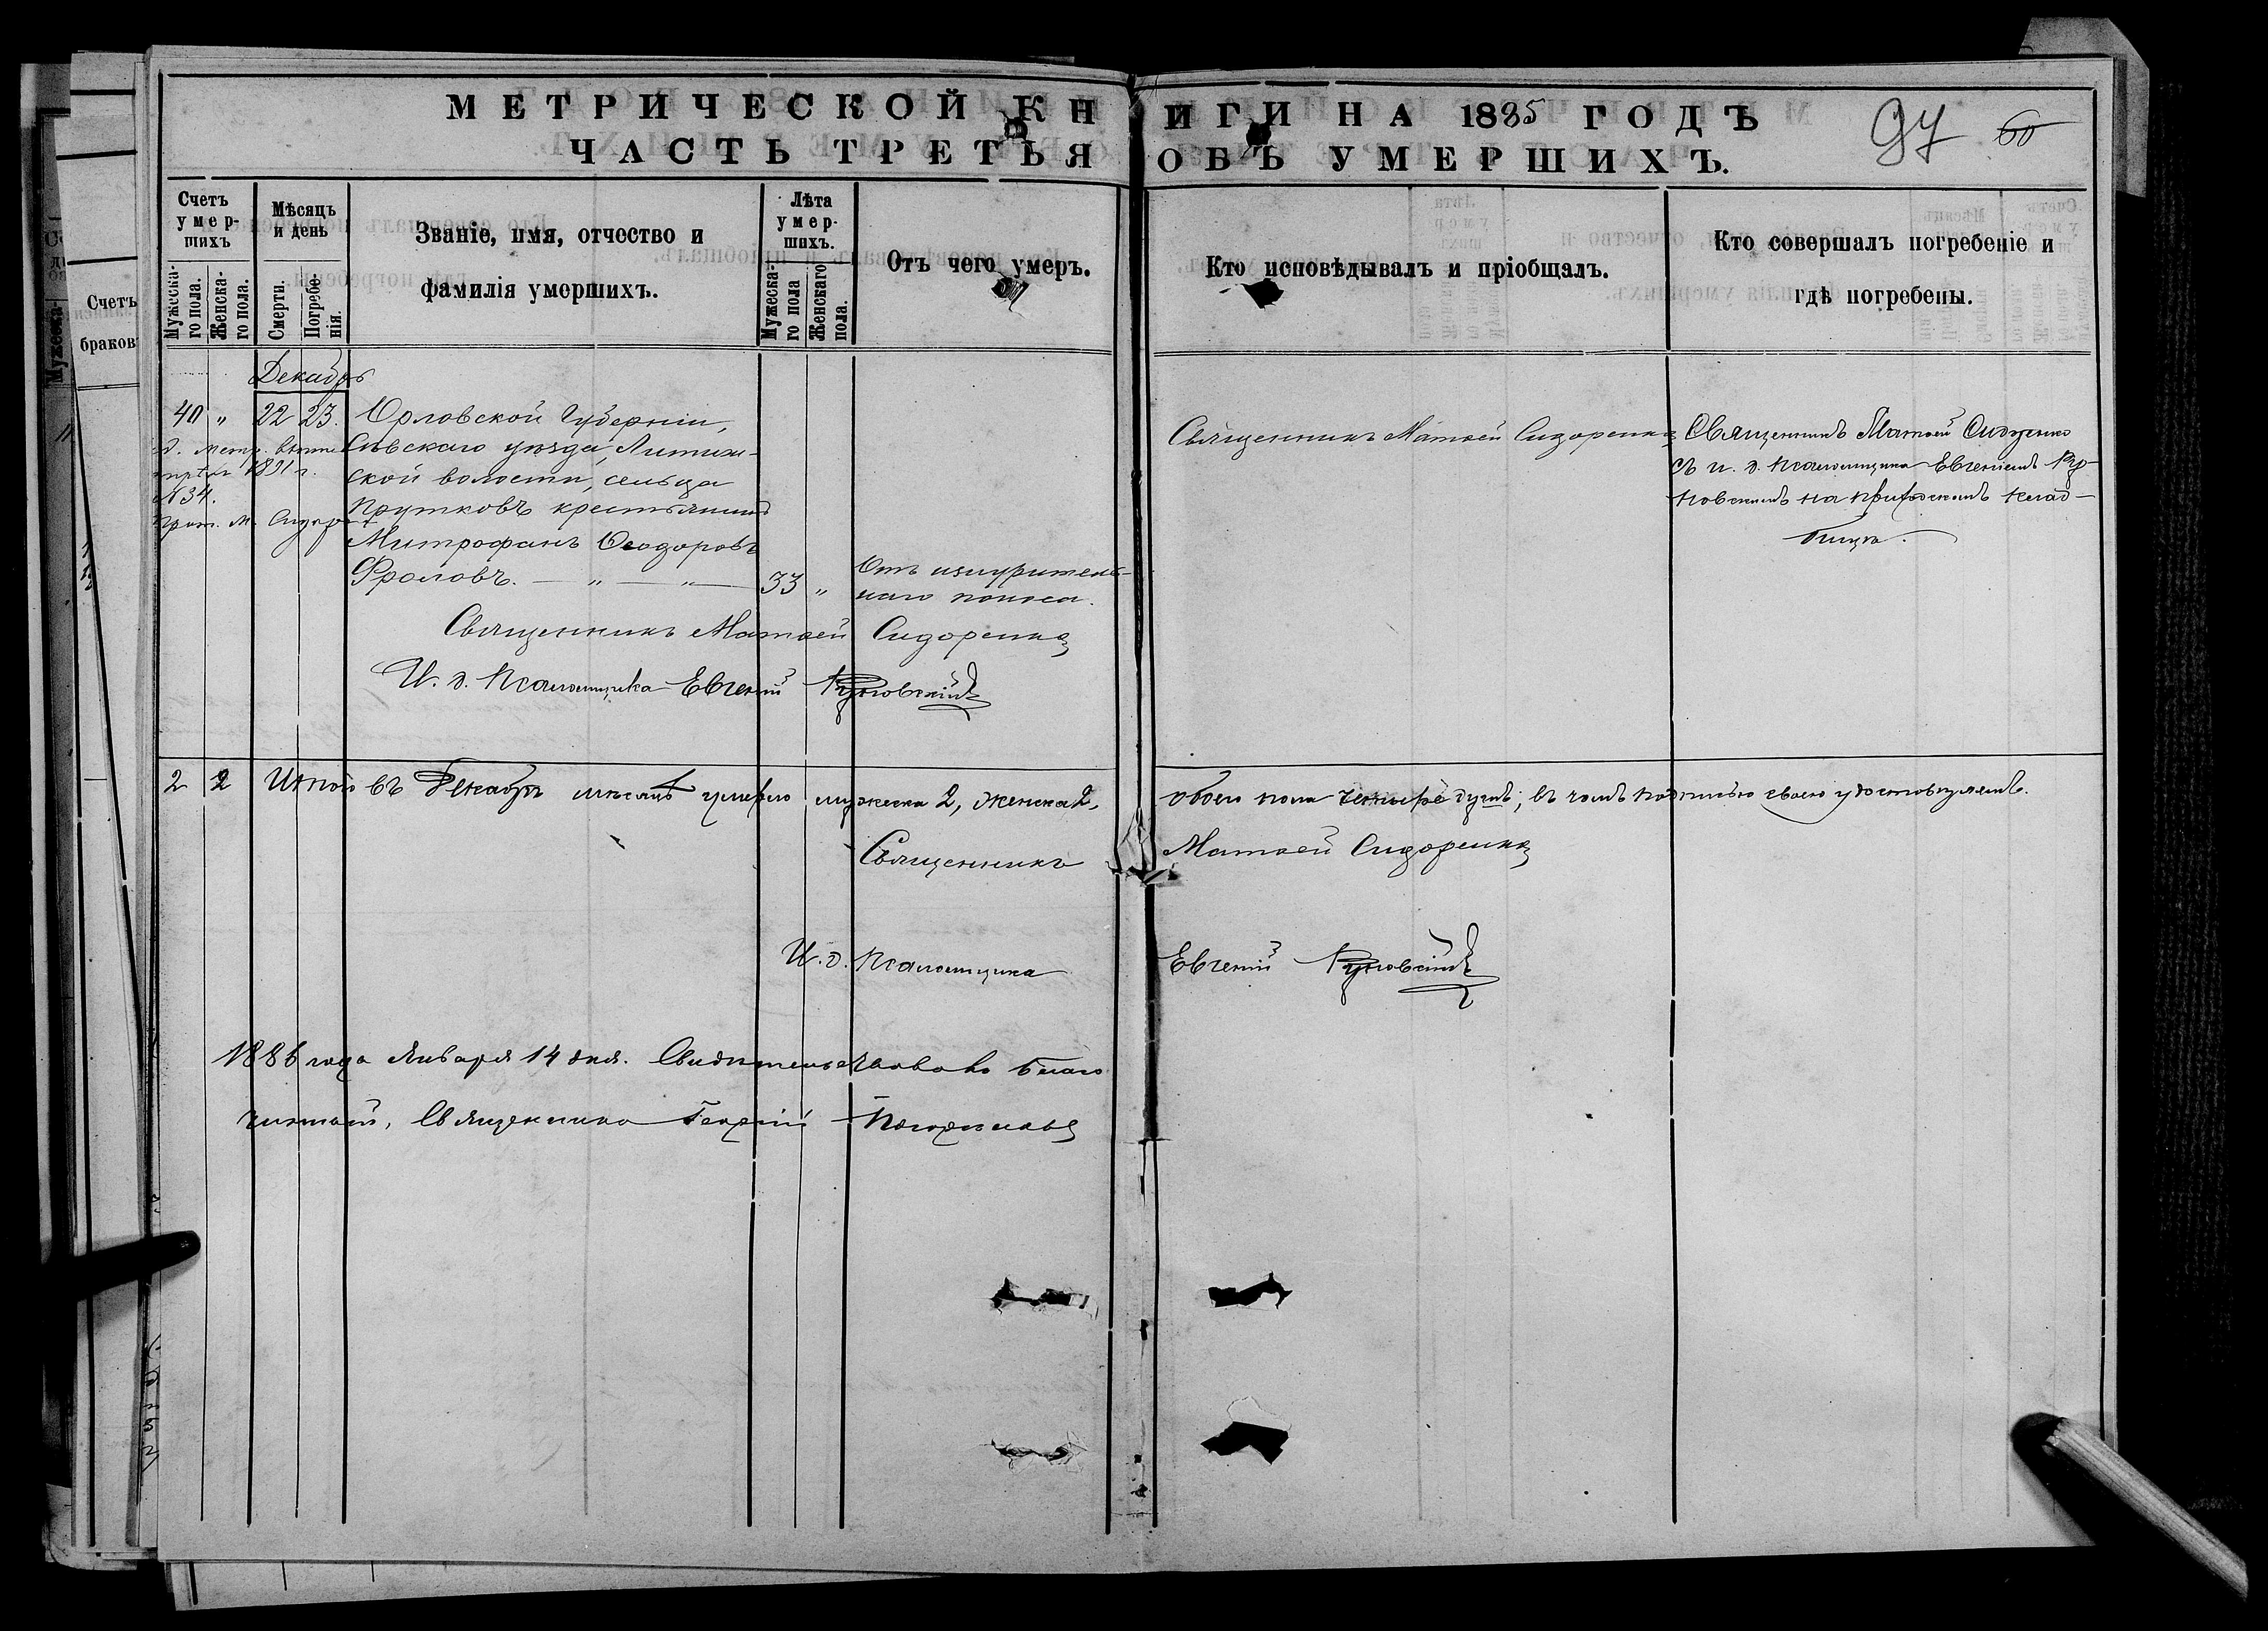 МЕТРИЧЕСКОЙ КНИГИ НА 1885 ГОДЪ
ЧАСТЬ ТРЕТЬЯ ОБЪ УМЕРШИХЪ.
97 60
Счетъ
умер-
шихъ
Мужеска-
го пола.
Женска-
го пола.
Мѣсяцъ
и день
Смерти.
Погребе-
нія.
Званіе, имя, отчество и
фамилія умершихъ.
Лѣта
умер-
шихъ.
Мужеска-
го пола
Женскаго
пола.
Отъ чего умеръ.
Кто исповѣдывалъ и пріобщалъ.
Кто совершалъ погребеніе и
гдѣ погребены.
Счетъ
браков
Декабрь
40 " 22 23.
В. метр.
1891 г.
№34.
Прот. М. Сидор
Орловской Губерніи,
Сѣвскаго уѣзда, Литиж-
ской волости, сельца
Прутковъ крестьянинъ
Митрофанъ Ѳеодоровъ
Фроловъ. — " — " — 33 "
Отъ изнуритель-
наго поноса.
Священникъ Матѳей Сидоренко
Священникъ Матѳей Сидоренко
съ и. д. псаломщика Евгеніемъ
на приходскомъ клад-
бищѣ.
Священникъ Матѳей Сидоренко
И. д. Псаломщика Евгеній
2 2 Итого въ Декабрѣ мѣсяцѣ умерло мужеска 2, женска 2, обоего пола четыре душъ, въ чемъ подписью своею удостовѣряемъ.
Священникъ Матѳей Сидоренко
И. д. Псаломщика Евгеній
1886 года Января 14 дня. Свидѣтельствовалъ Благо
чинный, Священникъ Георгій